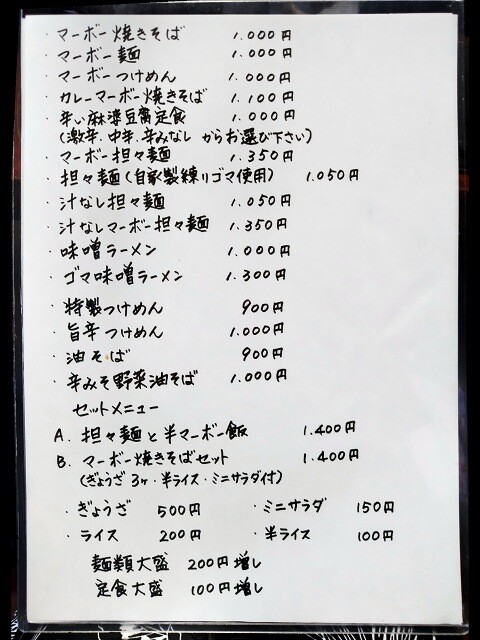 ・マーボー焼きそば 1.000円
・マーボー麺 1.000円
・マーボーつけめん 1.000円
・カレーマーボー焼きそば 1.100円
・辛い麻婆豆腐定食 1.000円
(激辛、中辛、辛みなし からお選び下さい)
・マーボー担々麺 1.350円
・担々麺(自家製練りゴマ使用) 1.050円
・汁なし担々麺 1.050円
・汁なしマーボー担々麺 1.350円
・味噌ラーメン 1.000円
・ゴマ味噌ラーメン 1.300円
・特製つけめん 900円
・旨辛つけめん 1.000円
・油そば 900円
・辛みそ野菜油そば 1.000円
セットメニュー
A. 担々麺と半マーボー飯 1.400円
B. マーボー焼きそばセット 1.400円
(ぎょうざ3ヶ・半ライス・ミニサラダ付)
・ぎょうざ 500円 ・ミニサラダ 150円
・ライス 200円 ・半ライス 100円
麺類大盛 200円増し
定食大盛 100円増し